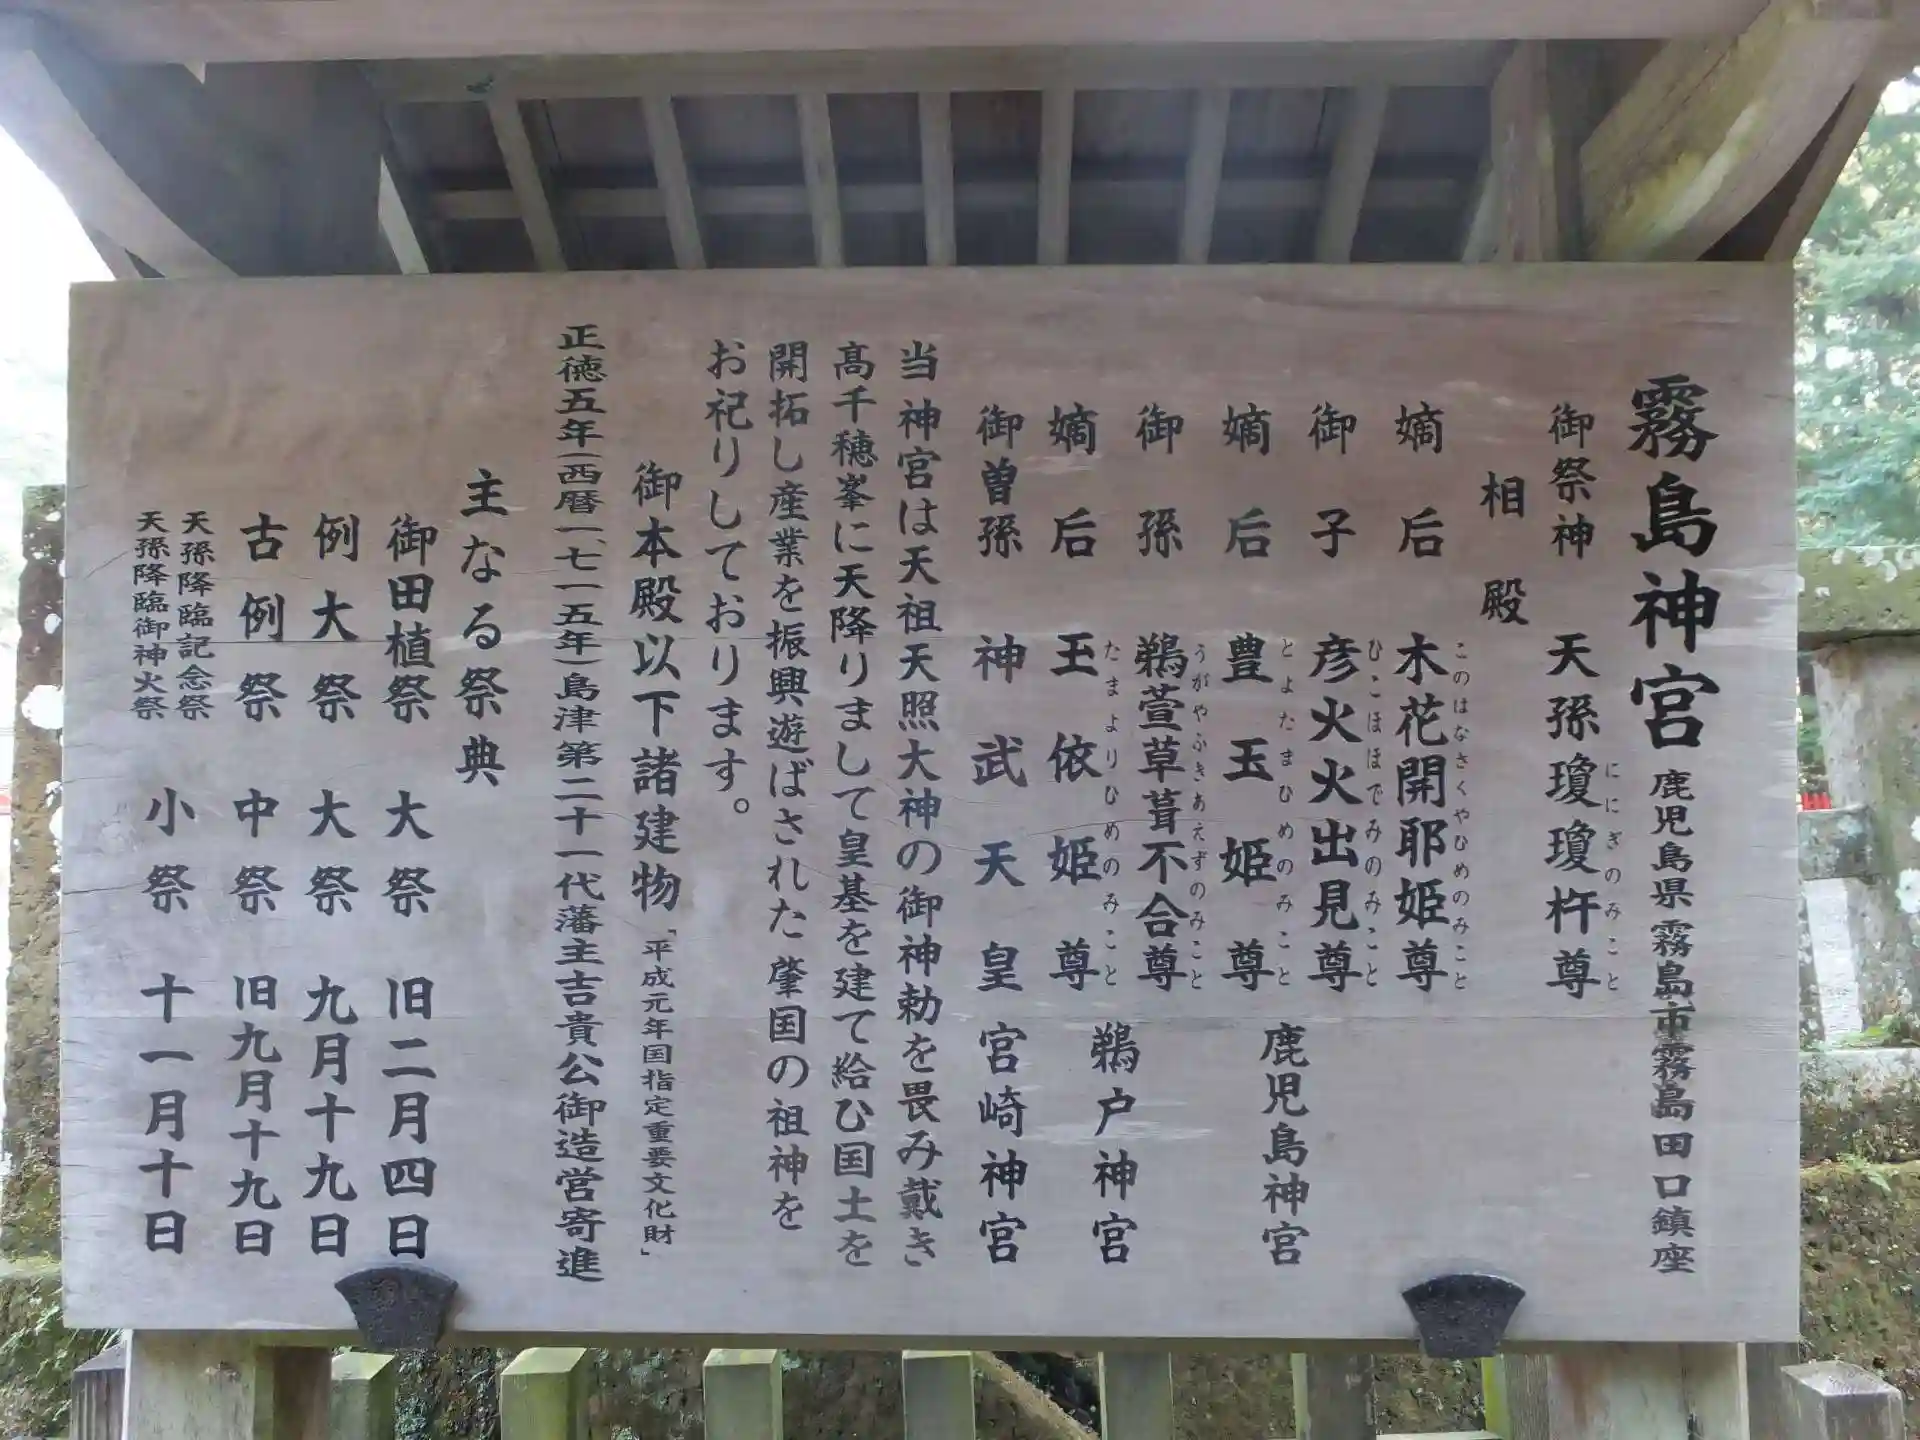 霧島神宮 鹿児島県霧島市霧島田口鎮座
御祭神 天孫瓊瓊杵尊
ににぎのみこと
相殿
嫡后 木花開耶姫尊
このはなさくやひめのみこと
御子 彦火火出見尊
ひこほほでみのみこと
嫡后 豊玉姫尊 鹿児島神宮
とよたまひめのみこと
御孫 鵜萱草葺不合尊
うがやふきあえずのみこと
嫡后 玉依姫尊 鵜戸神宮
たまよりひめのみこと
御曽孫 神武天皇 宮崎神宮
当神宮は天祖天照大神の御神勅を畏み戴き
高千穂峯に天降りまして皇基を建て給ひ国土を
開拓し産業を振興遊ばされた肇国の祖神を
お祀りしております。
御本殿以下諸建物「平成元年国指定重要文化財」
正徳五年(西暦一、七一五年)島津第二十一代藩主吉貴公御造営寄進
主なる祭典
御田植祭 大祭 旧二月四日
例大祭 大祭 九月十九日
古例祭 中祭 旧九月十九日
天孫降臨記念祭
天孫降臨御神火祭
小祭 十一月十日